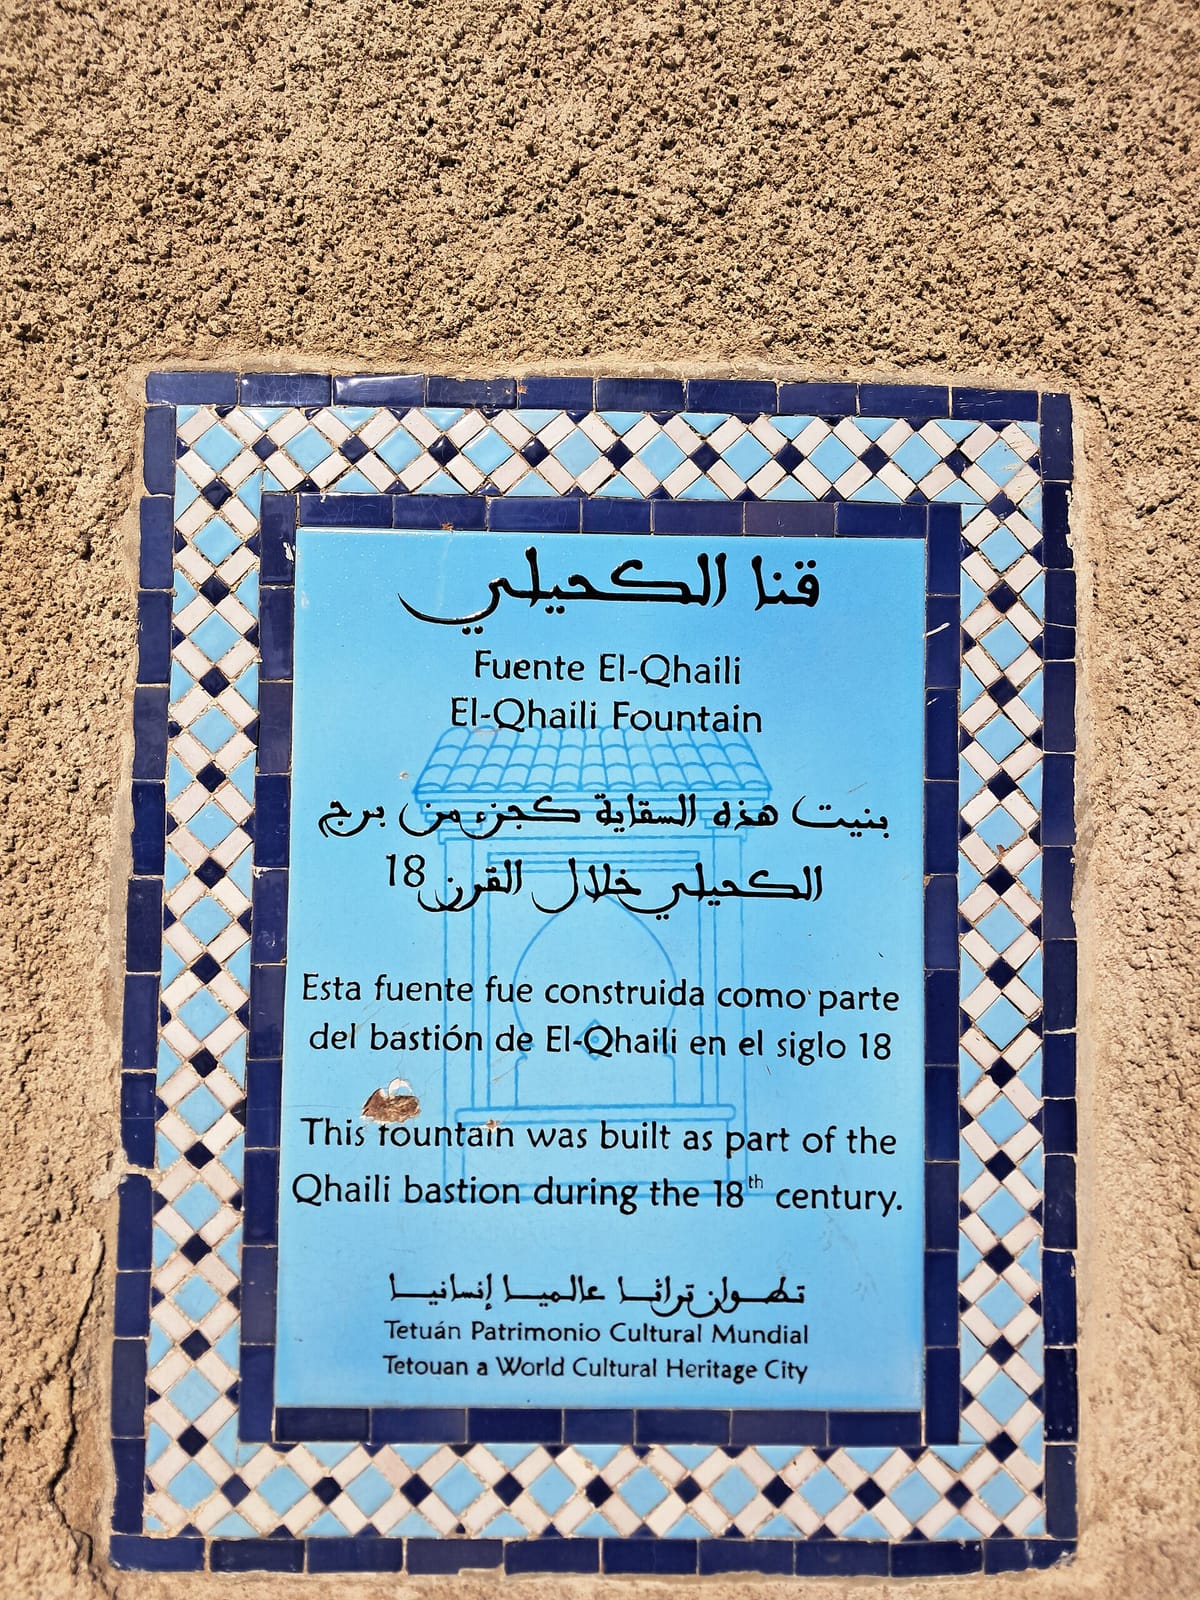 قنا الكحيلي
Fuente El-Qhaili
El-Qhaili Fountain
بنيت هذه السقاية كجزء من برج
الكحيلي خلال القرن 18
Esta fuente fue construida como parte
del bastión de El-Qhaili en el siglo 18
This fountain was built as part of the
Qhaili bastion during the 18th century.
تطوان تراثا عالميا إنسانيا
Tetuán Patrimonio Cultural Mundial
Tetouan a World Cultural Heritage City